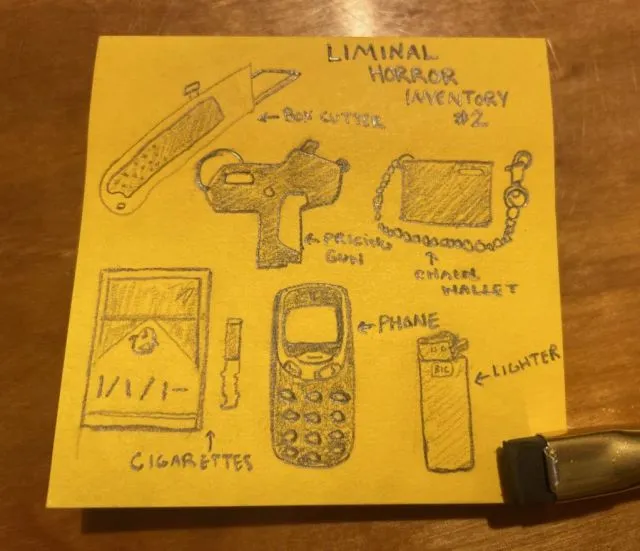 LIMINAL
HORROR
INVENTORY
#2
← BOX CUTTER
← PRICING
GUN
↑
CHAIN
WALLET
← PHONE
← LIGHTER
BIC
↑
CIGARETTES